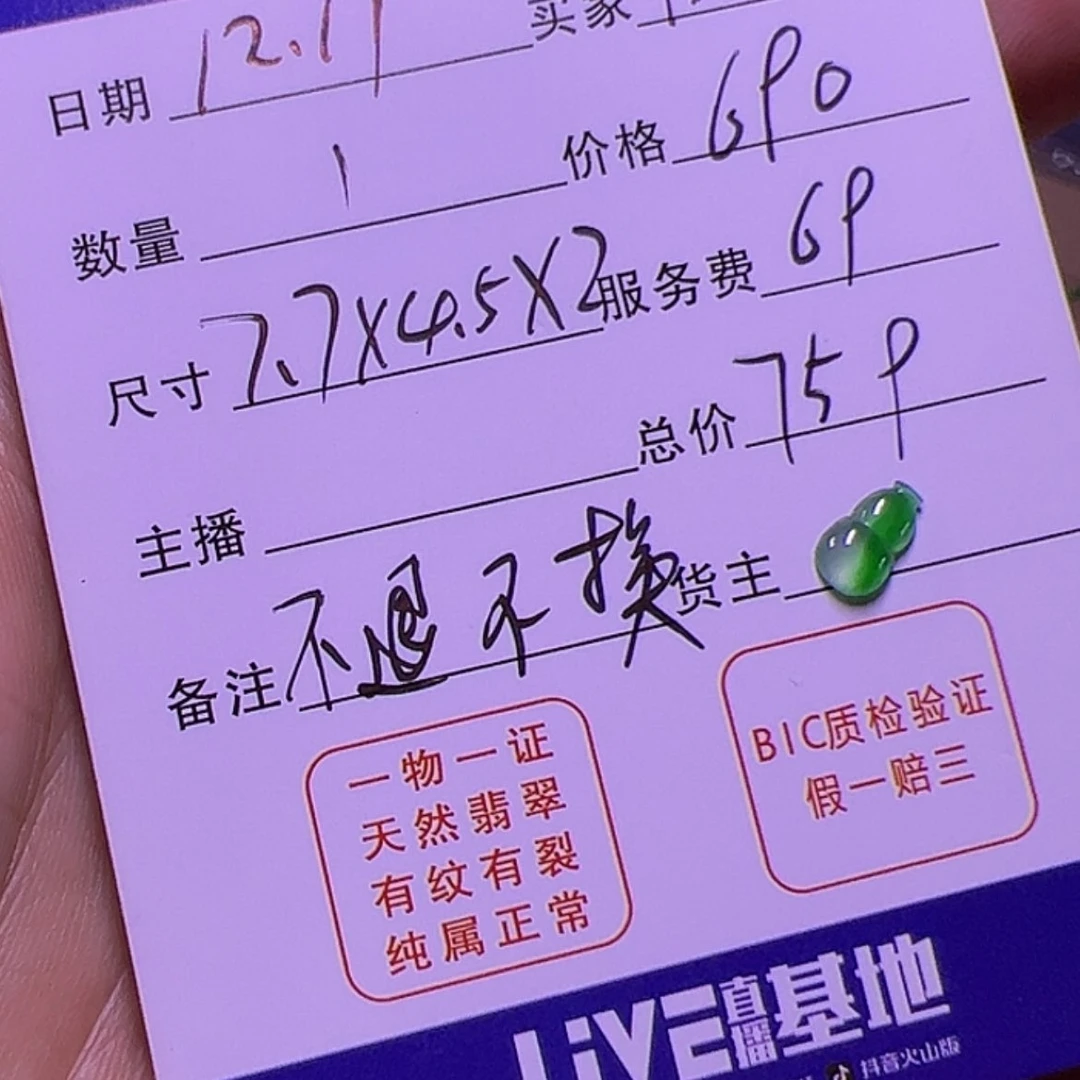 日期 12.11 买家
数量 1 价格 690
尺寸 7.7X4.5X2 服务费 69
主播 总价 759
备注 不退不换 货主
一物一证
天然翡翠
有纹有裂
纯属正常
BIC质检验证
假一赔三
LiVE直播基地
抖音火山版